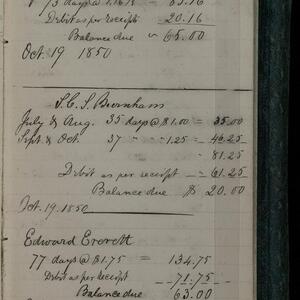 73 days @ 1.16 2/3 = 85.16
Debit as per receipt 20.16
Balance due " 65.00
Oct. 19 1850
S. C. S. Burnham
July & Aug. 35 days @ $1.00 = 35.00
Sept. & Oct. 37 " " 1.25 = 46.25
" 81.25
Debit as per receipt — 61.25
Balance due $ 20.00
Oct. 19. 1850
Edward Everett
77 days @ $1.75 = 134.75
Debit as per Receipt 71.75
Balance due 63.00